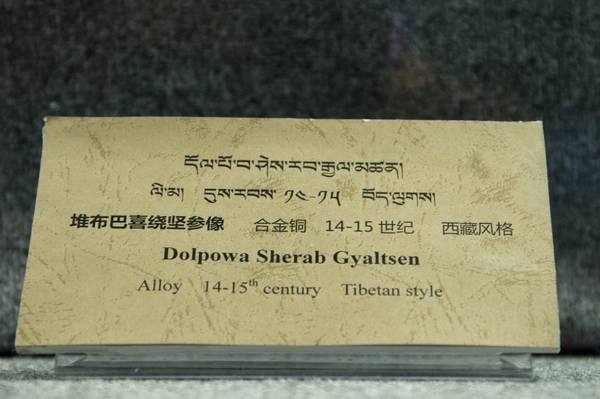 དོལ་པོ་བ་ཤེས་རབ་རྒྱལ་མཚན།
ལི་མ། དུས་རབས་ ༡༤-༡༥ བོད་ལུགས།
堆布巴喜绕坚参像 合金铜 14-15 世纪 西藏风格
Dolpowa Sherab Gyaltsen
Alloy 14-15th century Tibetan style